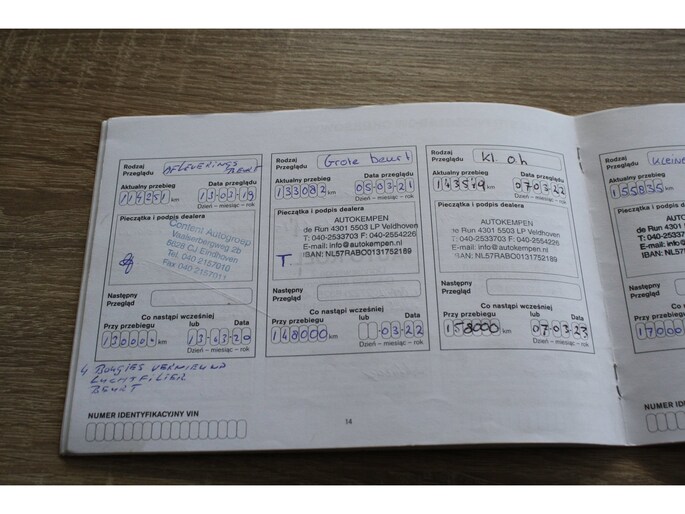 Rodzaj
Przeglądu
AFLEVERINGS
BEURT
Aktualny przebieg
Data przeglądu
114251 km
13-03-19
Dzień – miesiąc - rok
Pieczątka i podpis dealera
Content Autogroep
5626 CJ Eindhoven
Tel. 040 2157010
Fax 040 2157011
Następny
Przegląd
Co nastąpi wcześniej
Przy przebiegu
lub
Data
130000 km
13-03-20
Dzień – miesiąc - rok
4 BOUGIES VERNIEUWD
LUCHTFILTER
BEURT
NUMER IDENTYFIKACYJNY VIN
Rodzaj
Przeglądu
Grote beurt
Aktualny przebieg
Data przeglądu
133082 km
05-03-21
Dzień – miesiąc - rok
Pieczątka i podpis dealera
AUTOKEMPEN
de Run 4301 5503 LP Veldhoven
T: 040-2533703 F: 040-2554226
E-mail: info@autokempen.nl
IBAN: NL57RABO0131752189
T
Następny
Przegląd
Co nastąpi wcześniej
Przy przebiegu
lub
Data
148000 km
-03-22
Dzień – miesiąc - rok
Rodzaj
Przeglądu
Kl. oh
Aktualny przebieg
Data przeglądu
143579 km
07-03-22
Dzień – miesiąc - rok
Pieczątka i podpis dealera
AUTOKEMPEN
de Run 4301 5503 LP Veldhoven
T: 040-2533703 F: 040-2554226
E-mail: info@autokempen.nl
IBAN: NL57RABO0131752189
Następny
Przegląd
Co nastąpi wcześniej
Przy przebiegu
lub
Data
158000 km
07-03-23
Dzień – miesiąc - rok
14
Rodzaj
Przeglądu
KLEINE
Aktualny przebieg
155835 km
Pieczątka i podpis
AUTO
de Run 4301
T: 040-25337
E-mail: info@
IBAN: NL57R
Następny
Przegląd
Co
Przy przebiegu
17000
NUMER IDEN